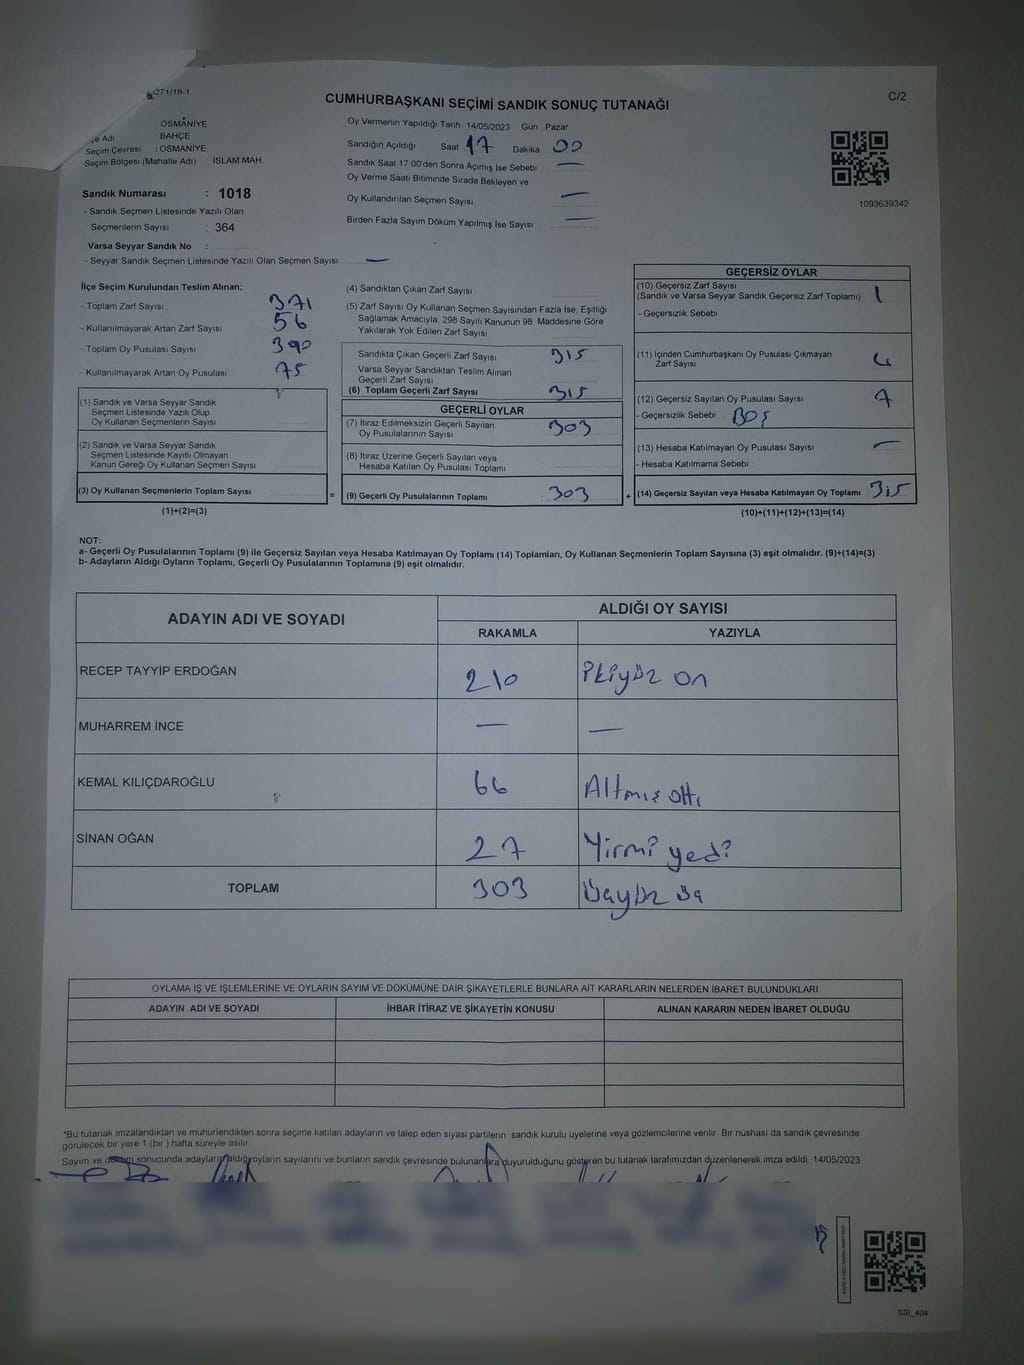 271/18-1
CUMHURBAŞKANI SEÇİMİ SANDIK SONUÇ TUTANAĞI
C/2
OSMANİYE
Adı BAHÇE
Seçim Çevresi : OSMANİYE
Seçim Bölgesi (Mahalle Adı) İSLAM MAH.
Sandık Numarası : 1018
- Sandık Seçmen Listesinde Yazılı Olan
Seçmenlerin Sayısı : 364
Varsa Seyyar Sandık No :
- Seyyar Sandık Seçmen Listesinde Yazılı Olan Seçmen Sayısı —
Oy Vermenin Yapıldığı Tarih 14/05/2023 Gün Pazar
Sandığın Açıldığı Saat 17 Dakika 00
Sandık Saat 17:00'den Sonra Açımış İse Sebebi —
Oy Verme Saati Bitiminde Sırada Bekleyen ve
Oy Kullandırılan Seçmen Sayısı —
Birden Fazla Sayım Döküm Yapılmış İse Sayısı —
1093639342
İlçe Seçim Kurulundan Teslim Alınan;
- Toplam Zarf Sayısı 371
- Kullanılmayarak Artan Zarf Sayısı 56
- Toplam Oy Pusulası Sayısı 390
- Kullanılmayarak Artan Oy Pusulası 75
(1) Sandık ve Varsa Seyyar Sandık
Seçmen Listesinde Yazılı Olup
Oy Kullanan Seçmenlerin Sayısı
(2) Sandık ve Varsa Seyyar Sandık
Seçmen Listesinde Kayıtlı Olmayan
Kanun Gereği Oy Kullanan Seçmen Sayısı
(3) Oy Kullanan Seçmenlerin Toplam Sayısı
=
(1)+(2)=(3)
(4) Sandıktan Çıkan Zarf Sayısı
(5) Zarf Sayısı Oy Kullanan Seçmen Sayısından Fazla İse, Eşitliği
Sağlamak Amacıyla, 298 Sayılı Kanunun 98. Maddesine Göre
Yakılarak Yok Edilen Zarf Sayısı
Sandıkta Çıkan Geçerli Zarf Sayısı 315
Varsa Seyyar Sandıktan Teslim Alınan
Geçerli Zarf Sayısı
(6) Toplam Geçerli Zarf Sayısı 315
GEÇERLİ OYLAR
(7) İtiraz Edilmeksizin Geçerli Sayılan
Oy Pusulalarının Sayısı 303
(8) İtiraz Üzerine Geçerli Sayılan veya
Hesaba Katılan Oy Pusulası Toplamı
(9) Geçerli Oy Pusulalarının Toplamı 303
+
GEÇERSİZ OYLAR
(10) Geçersiz Zarf Sayısı
(Sandık ve Varsa Seyyar Sandık Geçersiz Zarf Toplamı) 1
- Geçersizlik Sebebi
(11) İçinden Cumhurbaşkanı Oy Pusulası Çıkmayan
Zarf Sayısı 4
(12) Geçersiz Sayılan Oy Pusulası Sayısı 7
- Geçersizlik Sebebi BOŞ
(13) Hesaba Katılmayan Oy Pusulası Sayısı —
- Hesaba Katılmama Sebebi
(14) Geçersiz Sayılan veya Hesaba Katılmayan Oy Toplamı 315
(10)+(11)+(12)+(13)=(14)
NOT:
a- Geçerli Oy Pusulalarının Toplamı (9) ile Geçersiz Sayılan veya Hesaba Katılmayan Oy Toplamı (14) Toplamları, Oy Kullanan Seçmenlerin Toplam Sayısına (3) eşit olmalıdır. (9)+(14)=(3)
b- Adayların Aldığı Oyların Toplamı, Geçerli Oy Pusulalarının Toplamına (9) eşit olmalıdır.
ADAYIN ADI VE SOYADI ALDIĞI OY SAYISI
RAKAMLA YAZIYLA
RECEP TAYYİP ERDOĞAN 210 İkiyüz on
MUHARREM İNCE — —
KEMAL KILIÇDAROĞLU 66 Altmış altı
SİNAN OĞAN 27 Yirmi yedi
TOPLAM 303 Üçyüz üç
OYLAMA İŞ VE İŞLEMLERİNE VE OYLARIN SAYIM VE DÖKÜMÜNE DAİR ŞİKAYETLERLE BUNLARA AİT KARARLARIN NELERDEN İBARET BULUNDUKLARI
ADAYIN ADI VE SOYADI İHBAR İTİRAZ VE ŞİKAYETİN KONUSU ALINAN KARARIN NEDEN İBARET OLDUĞU
*Bu tutanak imzalandıktan ve mühürlendikten sonra seçime katılan adayların ve talep eden siyasi partilerin sandık kurulu üyelerine veya gözlemcilerine verilir. Bir nüshası da sandık çevresinde
görülecek bir yere 1 (bir ) hafta süreyle asılır.
Sayım ve döküm sonucunda adayların aldığı oyların sayılarını ve bunların sandık çevresinde bulunanlara duyurulduğunu gösteren bu tutanak tarafımızdan düzenlenerek imza edildi. 14/05/2023
SSI_404